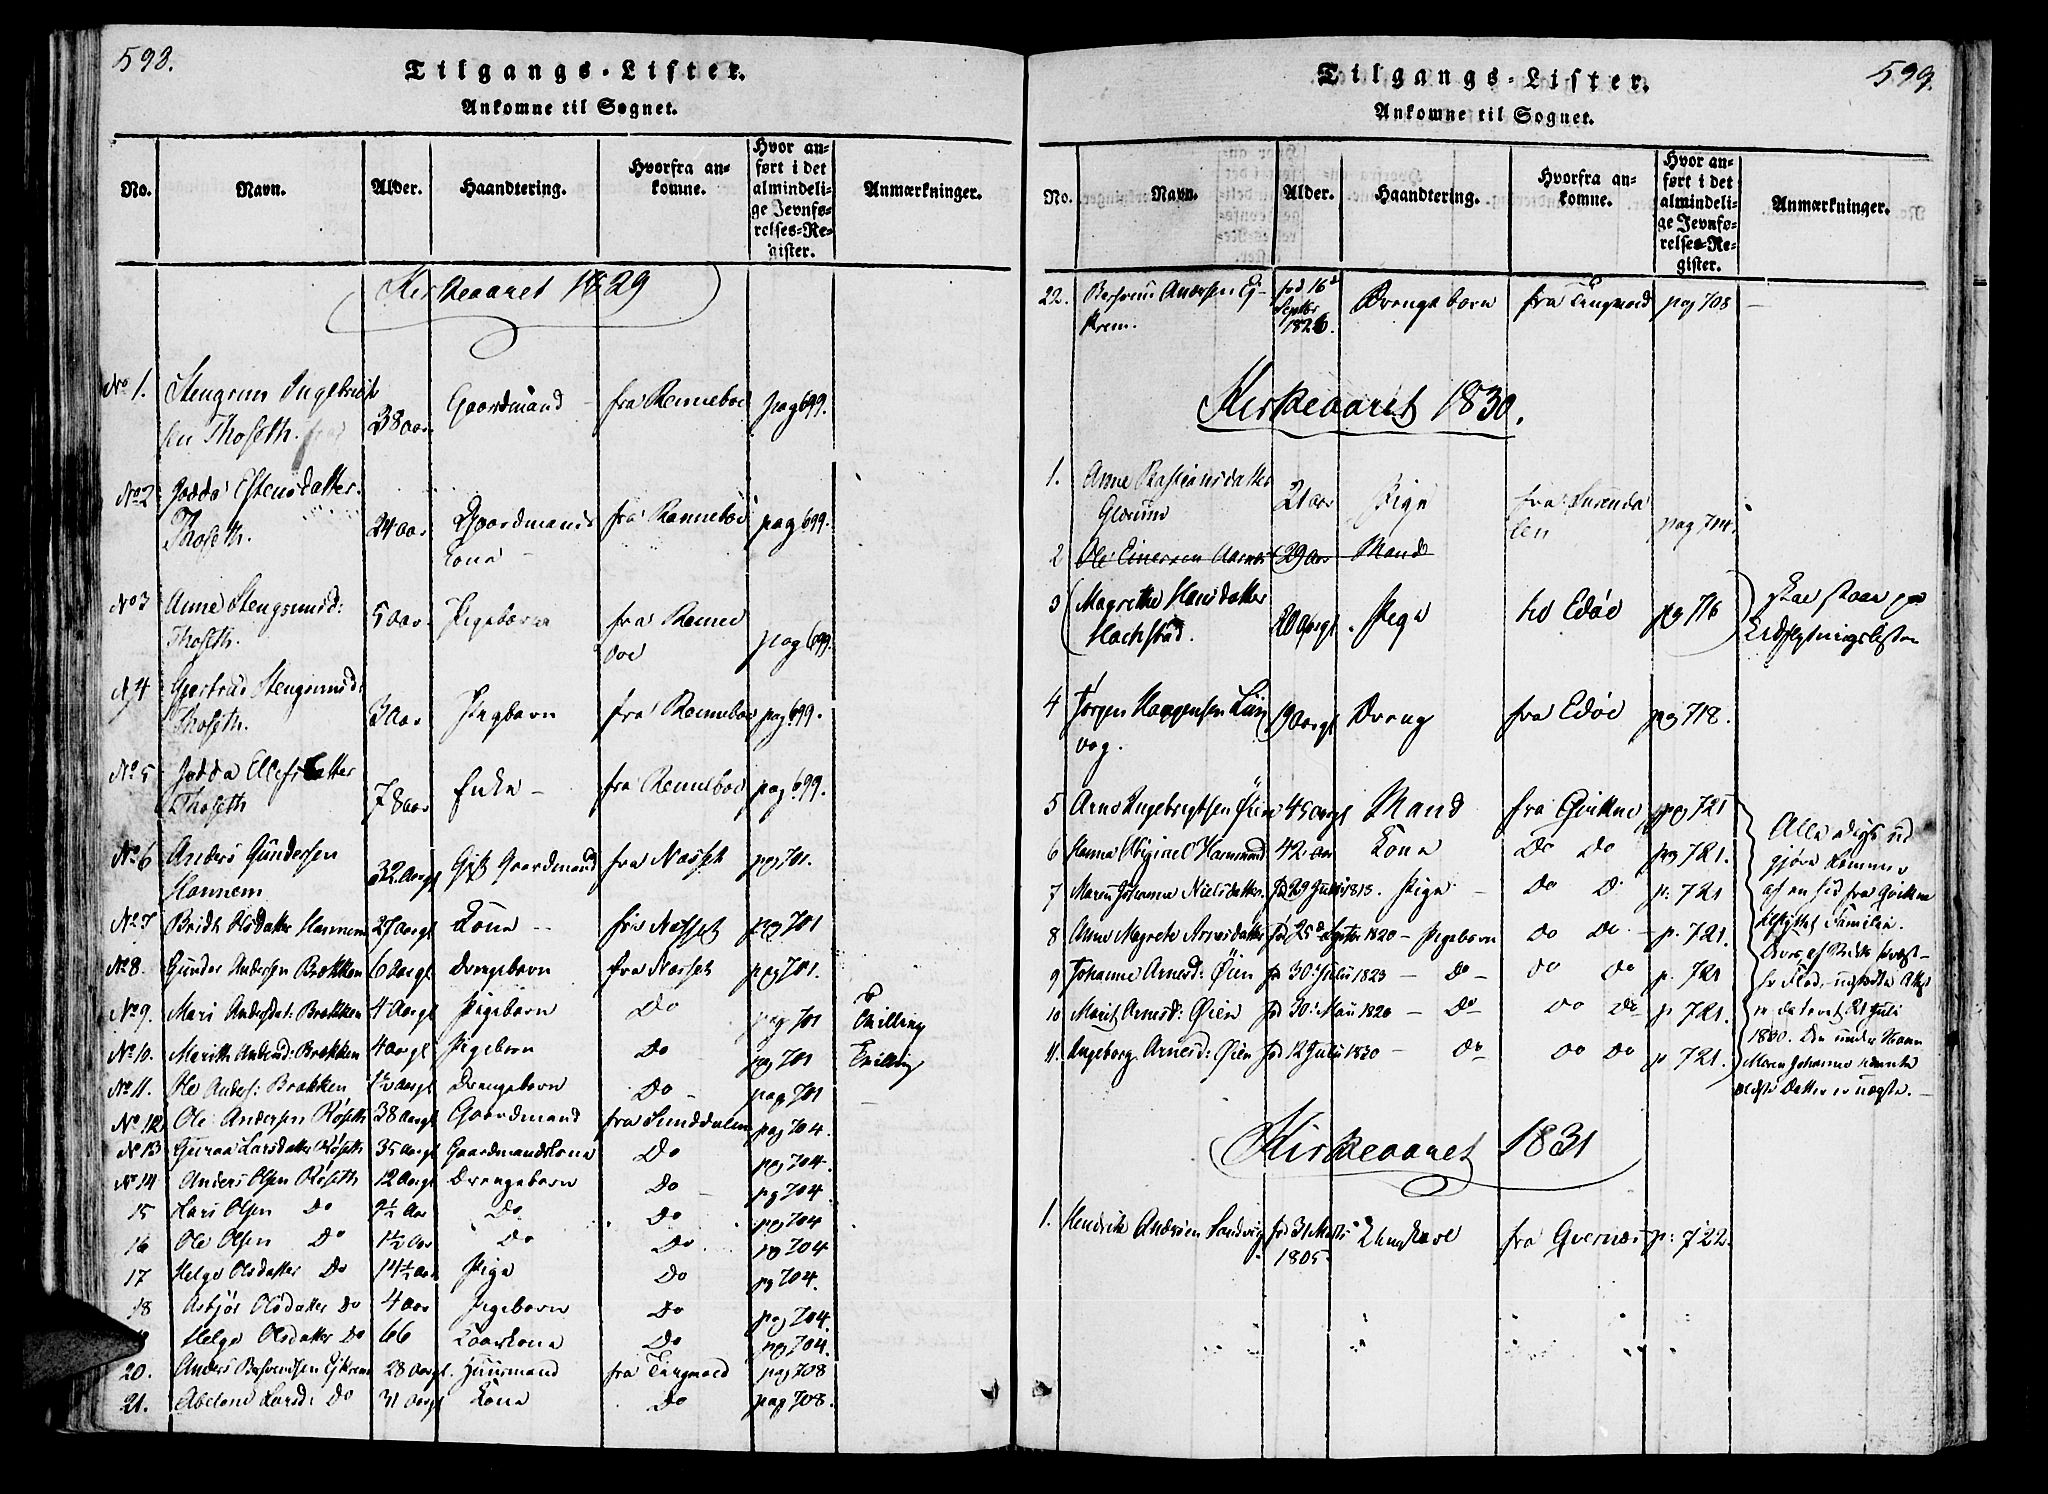 598.
Tilgangs-Lister.
Ankomne til Sognet.
No. Navn. Alder. Haandtering. Hvorfra ankomne. Hvor anført i det almindelige Jevnførelses-Register. Anmærkninger.
Kirkeaaret 1829
No 1. Stengrim Ingebrigt
sen Thoseth. 38 aar Gaardmand fra Renneboe pag 699.
No 2 Jodda Estensdatter
Thoseth. 24 aar Gaardmands
Kone fra Renneboe pag 699.
No 3 Anne Stengrimsd:
Thoseth. 5 aar. Pigebarn fra Renne
boe pag 699.
No 4 Gjertrud Stengrimsd:
Thoseth. 3 aar Pigebarn fra Renneboe pag 699.
No 5 Jodda Ellefsdatter
Thoseth 78 aar Enke fra Renneboe pag 699.
No 6 Anders Gundersen
Hannem 32 aargl Gift Gaardmand fra Nesset pag 701.
No 7 Bridt Olsdatter Hannem 27 aargl Kone fra Nesset pag 701
No 8. Gunder Andersen Brekken 6 aargl Drengebarn fra Nesset pag 701.
No 9. Mari Andersdat: Brekken 4 aargl Pigebarn Do pag 701 Tvilling
No 10. Marith Andersd: Brekken 4 aargl Pigebarn Do pag 701 Tvilling
No 11. Ole Anders: Brekken 1½ aargl Drengebarn Do pag 701
No 12 Ole Andersen Røseth 38 aargl Gaardmand fra Sunddalen pag 704.
No 13 Guroe Larsdatter Røseth 35 aargl Gaardmandskone Do pag 704.
No 14 Anders Olsen Røseth 12 aargl Drengebarn Do pag 704
15 Lars Olsen Do 9½ aar Do Do pag 704
16 Ole Olsen Do 1½ aar Do Do pag 704
17 Helge Olsdatter Do 14½ aar Pige Do pag 704.
18 Asbjør Olsdatter Do 4 aar Pigebarn Do pag 704.
Helge Olsdatter Do 66 Kaarkone Do pag 704.
20. Anders 28 aargl. Huusmand fra Tingvold pag 708
21. Larsd: Do 31 aargl Kone Do pag 708.
599.
Tilgangs-Lister.
Ankomne til Sognet.
No. Navn. Alder. Haandtering. Hvorfra ankomne. Hvor anført i det almindelige Jevnførelses-Register. Anmærkninger.
22. Andersen Ej-
krem. fød 16d
Septbr
1826. Drengebarn fra Tingvold pag 708
Kirkeaaret 1830.
1. Anne Bastiansdatter
Glærum 21 aar Pige fra Surenda
len pag 714.
2 Ole Einersen Aarnes 29 aar Mand
3 Magrethe Hansdatter
Hachstad. 20 aargl. Pige til Edøe pag 716 skal staae paa
Udflytningslisten
4 Jørgen Haagensen Liin
vog. 19 aargl Dreng fra Edøe pag 718.
5 Arne Ingebrigtsen Øien 45 aargl Mand fra Qvikne pag 721
6 Hanna Abiginel Hammond 42 aar Kone Do Do pag 721.
7 Maren Johanna Nielsdatter. fød 29 Juli 1813. Pige Do Do p. 721
8 Anne Magrete Arnesdatter fød 25d Agster 1820 Pigebarn Do Do p. 721.
9 Johanne Arnesd: Øien fød 30d Juli 1823 Do Do Do p. 721
10 Marit Arnesd: Øien fød 30d Maii 1826 Do Do Do p 721.
11. Ingeborg Arnesd: Øien fød 12 Juli 1830 Do Do Do p 721.
Alle disse ud
gjøre
af en hid fra Qvikne
flyttet Familie.
er dateret 21 Juli
1830. Den under Navn
Maren Johanna nævnte
ældste Datter er uægte.
Kirkeaaret 1831
1. Hendrik Andersen Sandvig fød 31 Marts
1805 Ungkarl fra Qvernes p: 722.